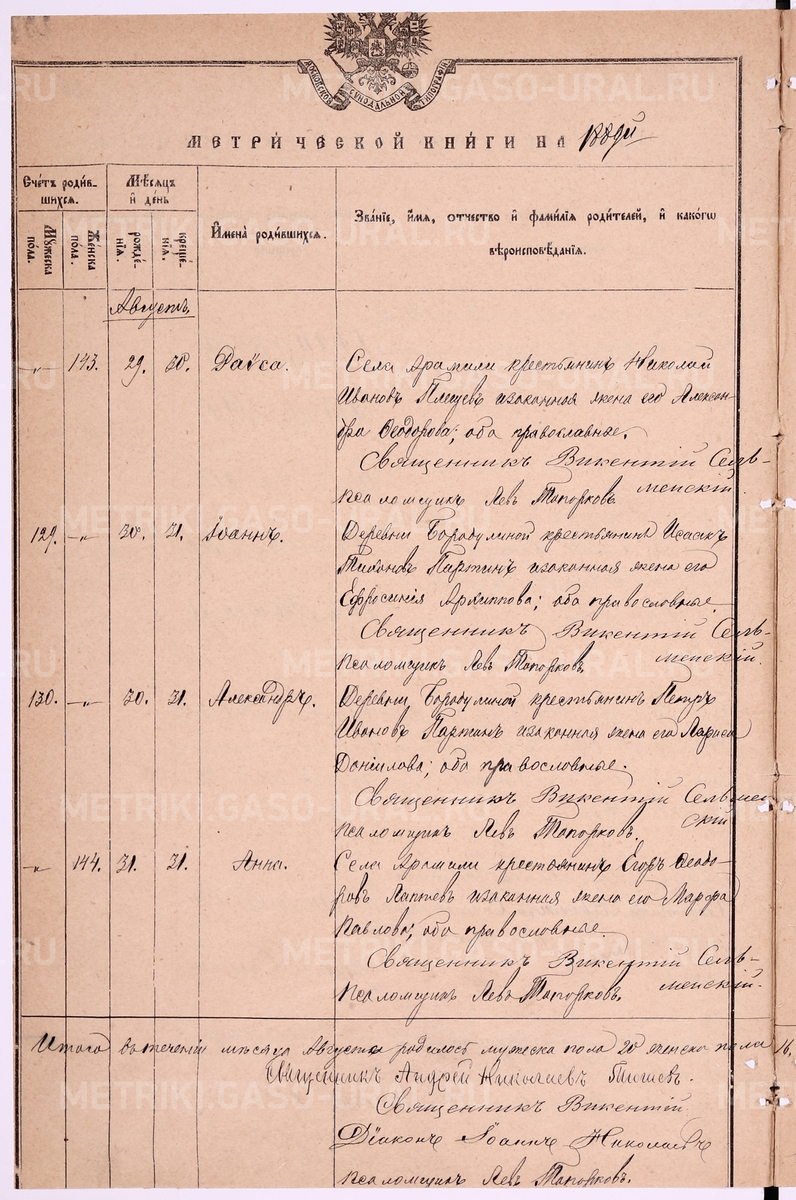 МОСКОВСКОЙ СѴНОДАЛЬНОЙ ТИПОГРАФІИ
МЕТРИ́ЧЕСКОЙ КНИ́ГИ НА 188
Сче́тъ роди́в-
шихся.
Мѣ́сяцъ
и҆ де́нь
И҆мена̀ роди́вшихся.
Зва́нїе, и҆́мя, ѻ҆́тчество и҆ фами́лїа роди́телей, и҆ како́гѡ
вѣроисповѣ́данїя.
Мꙋ́жеска
пола.
Же́нска
пола.
рожде́-
нїя.
креще́-
нїя.
Августъ
-"- 143. 29. 30. Раиса. Села Арамили крестьянинъ Николай
Ивановъ Плещевъ изаконная жена его Алексан-
дра Ѳеодорова; оба православные.
Священникъ Викентій Сель-
менскій.
Псаломщикъ Левъ Топорковъ
129. -"- 30. 31. Іоаннъ. Деревни Бородулиной крестьянинъ Исаакъ
Тихоновъ Партинъ изаконная жена его
Ефросинія Архиппова; оба православные
Священникъ Викентій Сель-
менскій.
Псаломщикъ Левъ Топорковъ
130. -"- 30. 31. Александръ. Деревни Бородулиной крестьянинъ Петръ
Ивановъ Партинъ изаконная жена его Лариса
Даніилова; оба православные.
Священникъ Викентій Сельмен
скій
Псаломщикъ Левъ Топорковъ.
-"- 144. 31. 31. Анна. Села Арамили крестьянинъ Егоръ Ѳеодо-
ровъ Лаптевъ изаконная жена его Марфа
Павлова; оба православные.
Священникъ Викентій Сель-
менскій.
Псаломщикъ Левъ Топорковъ.
Итого втечении мѣсяца Августа родилось мужеска пола 20 женска пола 16.
Священникъ Андрей Николаевъ
Священникъ Викентій
Діаконъ Іоаннъ Николаевъ
Псаломщикъ Левъ Топорковъ.
METRIKI.GASO-URAL.RU